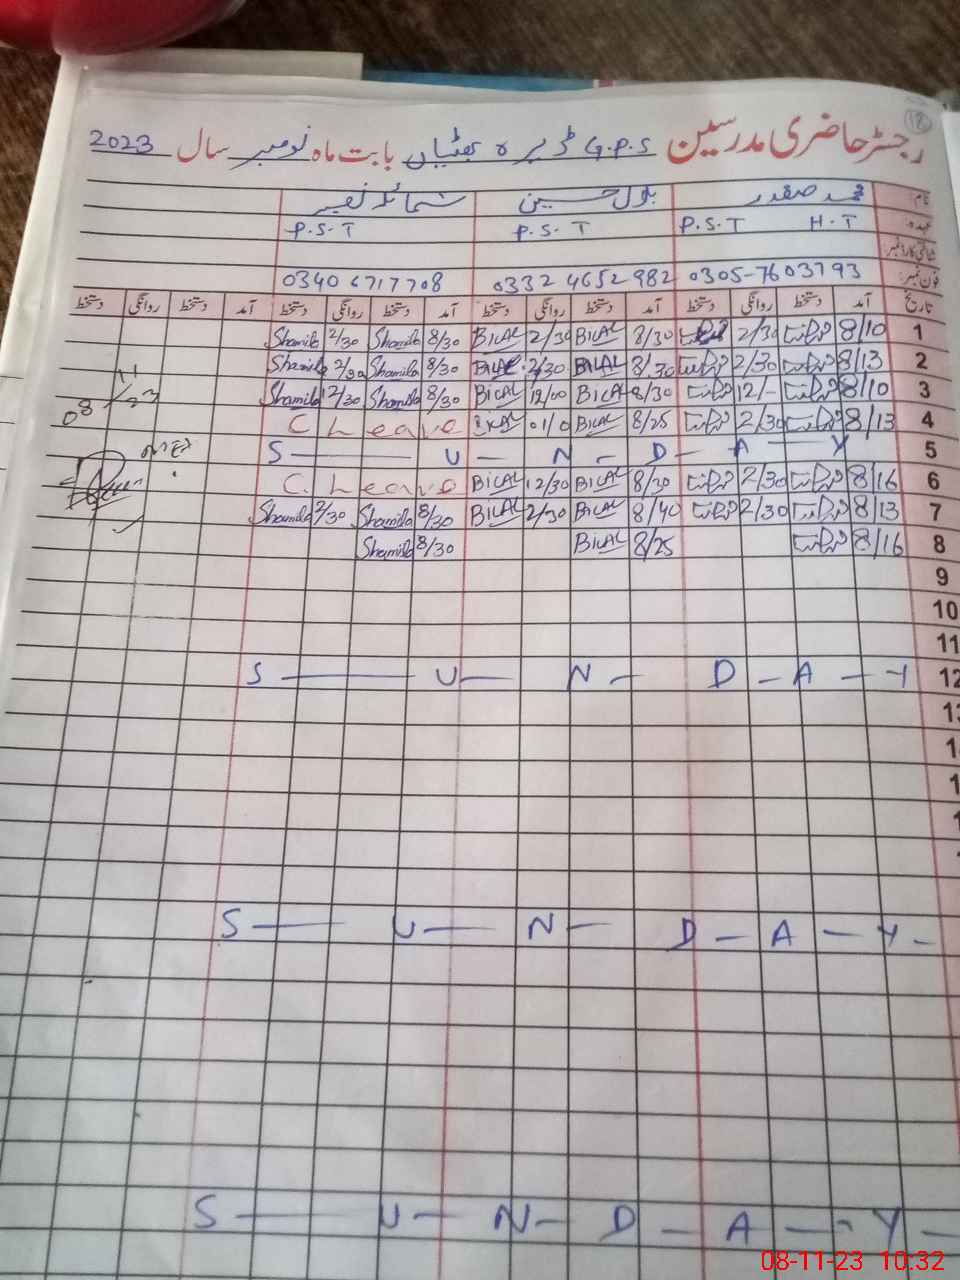 رجسٹر حاضری مدرسین G.P.S ڈیرہ بھٹیاں بابت ماہ نومبر سال 2023
نام: محمد صفدر بلال حسین شمائلہ نصیر
عہدہ: P.S.T H.T P.S.T P.S.T
شناختی کارڈ نمبر:
فون نمبر: 0305-7603793 0332 4652982 0340 6717708
تاریخ آمد دستخط روانگی دستخط آمد دستخط روانگی دستخط آمد دستخط روانگی دستخط آمد دستخط روانگی دستخط
1 8/10 2/30 8/30 BILAL 2/30 BILAL 8/30 Shamila 2/30 Shamila
2 8/13 2/30 8/30 BILAL 2/30 BILAL 8/30 Shamila 2/30 Shamila
3 8/10 12/- 8/30 BILAL 12/00 BILAL 8/30 Shamila 12/30 Shamila
4 8/13 2/30 8/25 BILAL 01/0 BILAL C Leave
5 S U N D A Y
6 8/16 2/30 8/30 BILAL 12/30 BILAL C. Leave
7 8/13 2/30 8/40 BILAL 2/30 BILAL 8/30 Shamila 2/30 Shamila
8 8/16 8/25 BILAL 8/30 Shamila
08/11/23
9
10
11
12 S U N D A Y
S U N D A Y
S U N D A Y
08-11-23 10:32